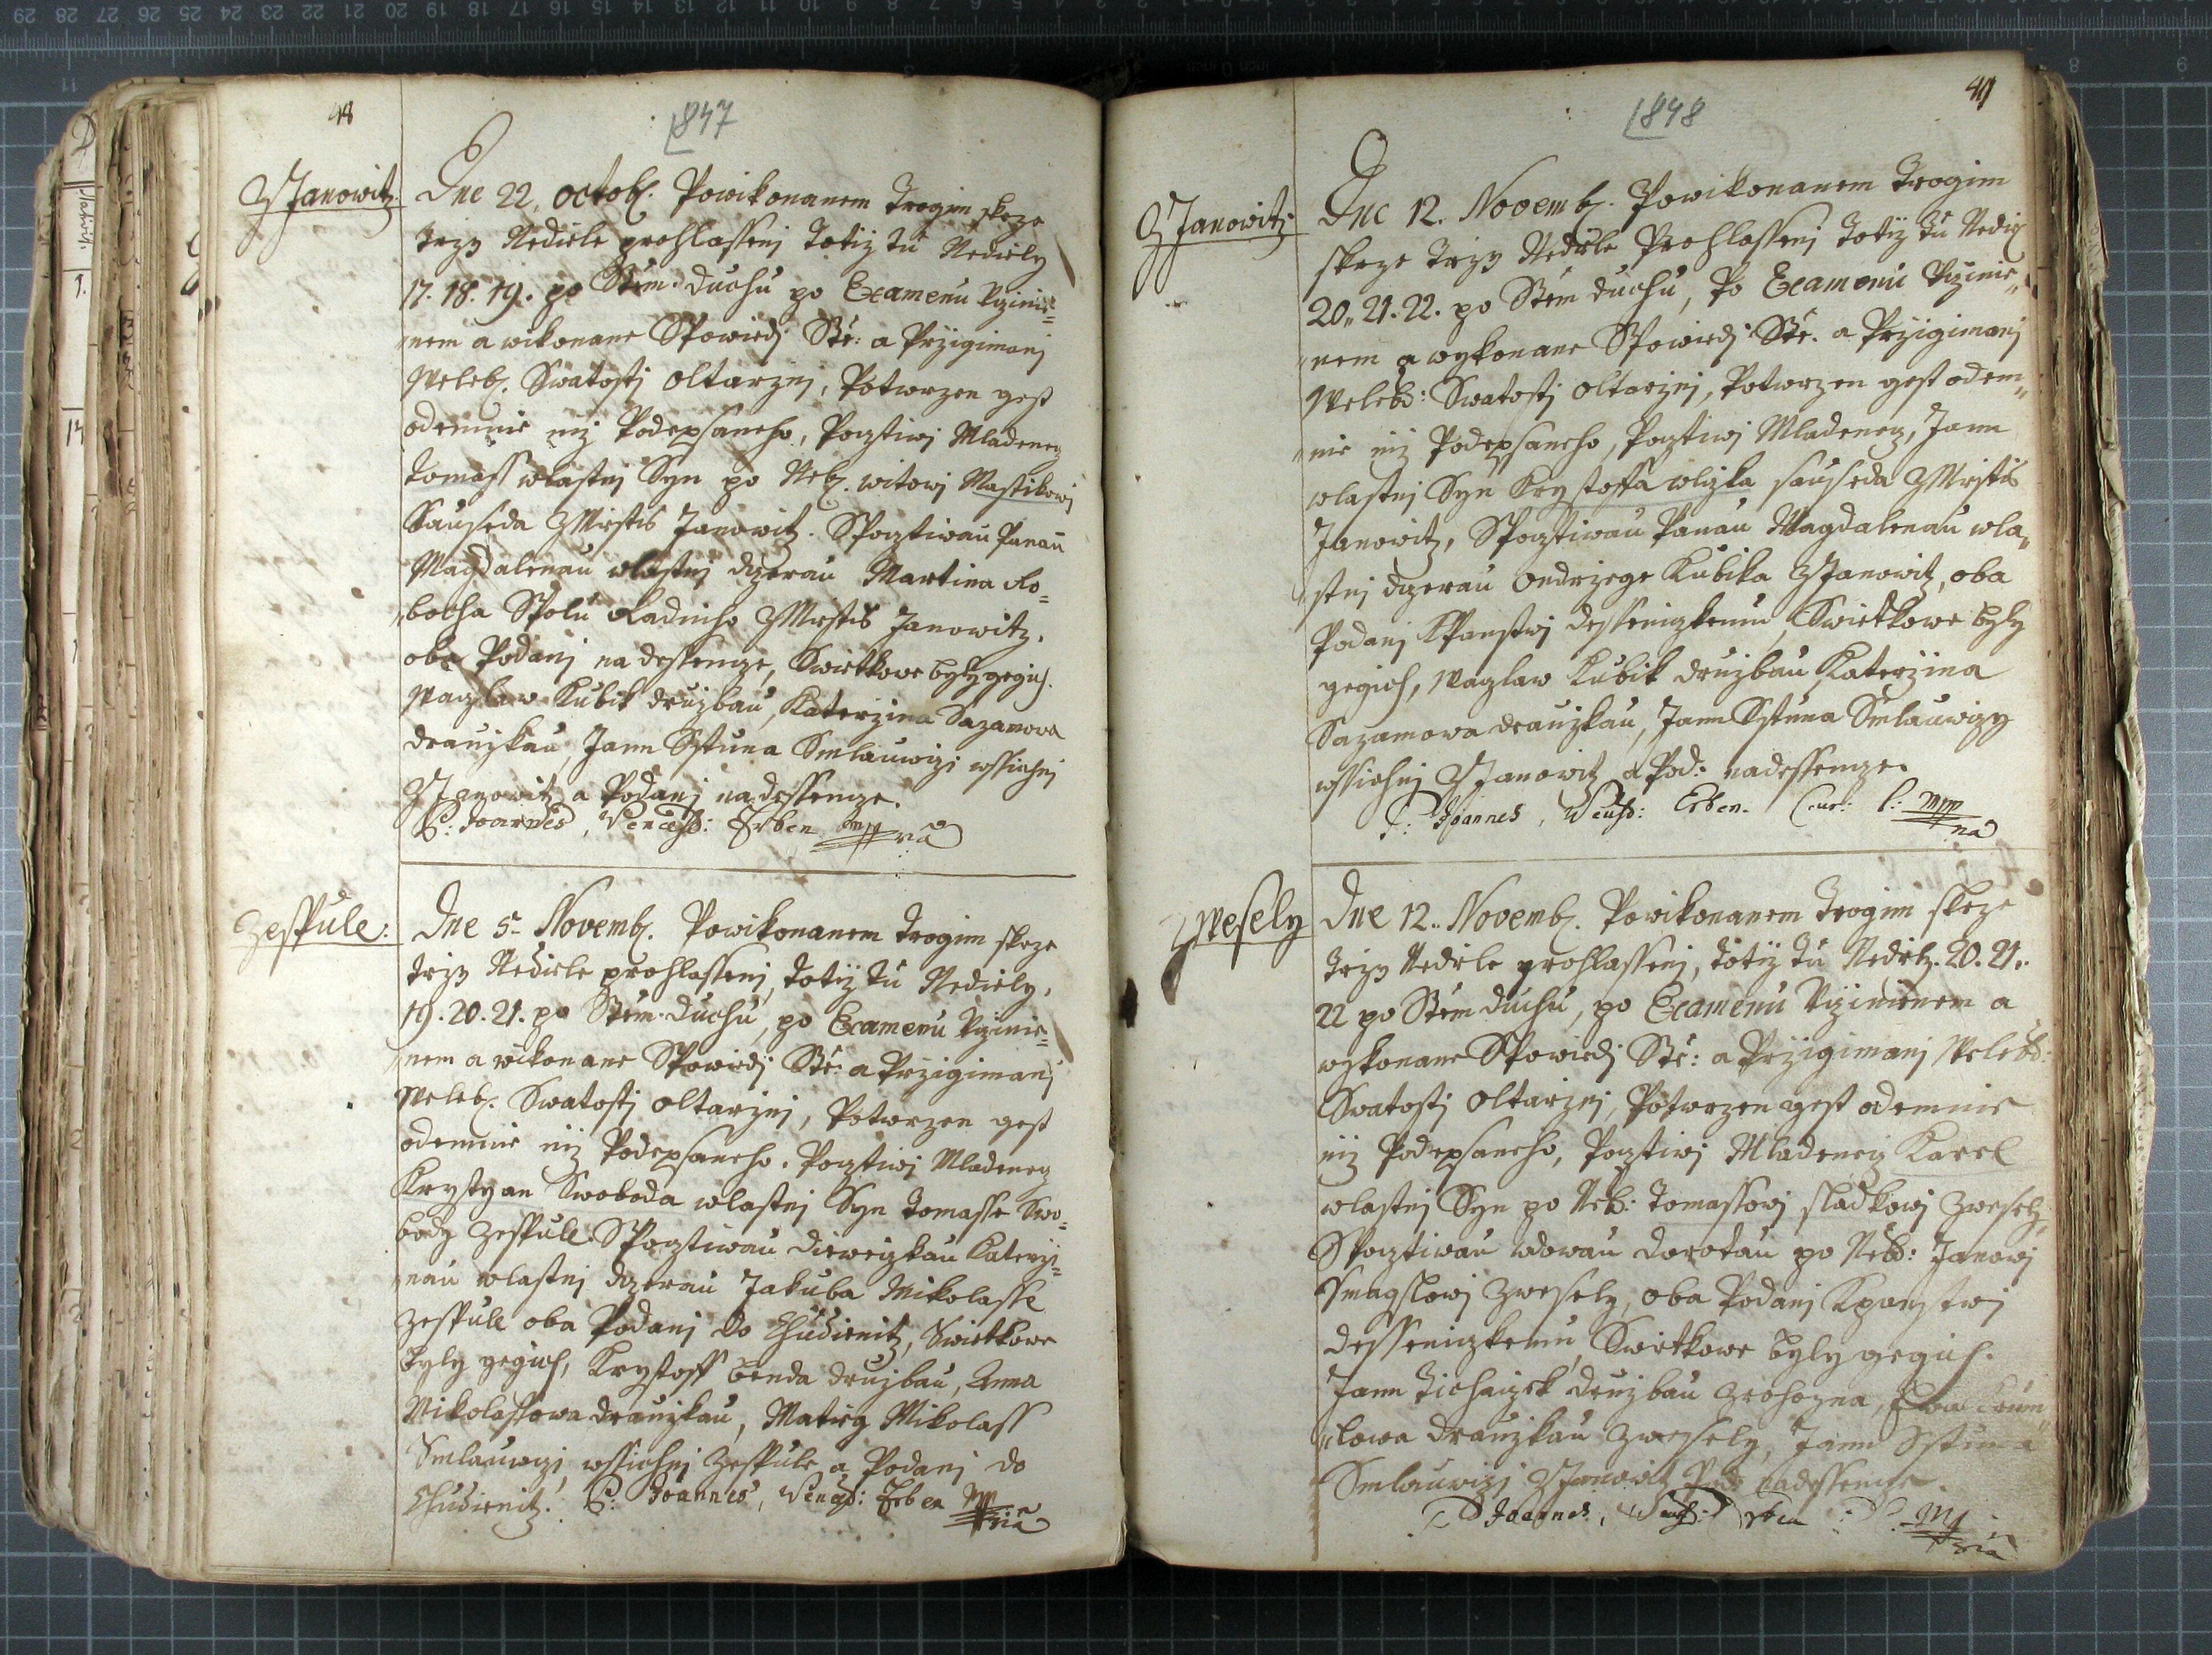 48
1847
Z Janowitz.
Dne 22. octob. Powikonanem Trogim skrze
trzy Nediele prohlassenj Totiz tu Nediely
17. 18. 19. po Stem. duchu po Examenu Vzinie=
nem a wikonane Spowiedj Ste: a Przigimanj
Weleb. Swatosti oltarznj, Potwrzen gest
odemnie niz Podepsaneho, Pocztiwj Mladenecz
Tomass wlastnj Syn po Neb. witowj Mastikowj
Sauseda Z Miestis Janowitz. S Pocztiwau Panau
Magdalenau wlastnj dczerau Martina Ro=
bocha Spolu Radniho Z Miestis Janowitz.
oba Podanj na dessenize, Swietkowe byly gegich.
Waczlaw Kubik druzbau, Katerzina Sazamova
drauzkau, Jann Sstuna Smlauwczi wssichnj
Z Janowitz a Podanj na dessenize.
P: Joannes, Vencesl: Erben mp ria
Zespule:
Dne 5. Novemb. Powikonanem Trogim skrze
trzy Nediele prohlassenj, Totiz tu Nediely,
19. 20. 21. po Stem. duchu, po Examenu Vzinie=
nem a wikonane Spowiedj Ste: a Przigimanj
Weleb. Swatosti oltarznj, Potwrzen gest
odemnie niz Podepsaneho. Pocztiwj Mladenecz
Krystyan Swoboda wlastnj Syn Tomasse Swo=
body Zespule. S Pocztiwau diewczkau Katerzi=
nau wlastnj dczerau Jakuba Mikolasse
Zespule oba Podanj do Chudienitz, Swietkowe
byly gegich, Krystoff benda druzbau, Anna
Mikolassowa drauzkau, Matieg Mikolass
Smlauwczj wssichnj Zespule a Podanj do
Chudienitz. P: Joannes, Vencesl: Erben mp ria
49
1848
Z Janowitz.
Dne 12. Novemb. Powikonanem Trogim
skrze trzy Nediele Prohlassenj Totiz tu Nediel
20. 21. 22. po Stem duchu, Po Examenu Vzinie„
„nem a wykonane Spowiedj Ste. a Przigimanj
Weleb: Swatosti oltarznj, Potwrzen gest odem„
„nie niz Podepsaneho, Pocztiwj Mladenecz, Jann
wlastnj Syn Krystoffa wlczka sauseda Z Miestis
Janowitz, S Pocztiwau Panau Magdalenau wla„
„stnj dczerau Ondrzege Kubika Z Janowitz, oba
Podanj k Panstwj dessenizkemu, Swietkowe byly
gegich, Waczlaw Kubik druzbau, Katerzina
Sazamowa drauzkau, Jann Sstuna Smlauwczy
wssichnj Z Janowitz a Pod: na dessenize.
P: Joannes, Vencesl: Erben. Cur: l: mp ria
Z Wesely
Dne 12. Novemb. Powikonanem Trogim skrze
trzy Nediele prohlassenj, Totiz tu Nediely. 20. 21.
22 po Stem duchu, po Examenu Vzinienem a
wykonane Spowiedj Ste: a Przigimanj Weleb:
Swatosti oltarznj, Potwrzen gest odemnie
niz Podepsaneho, Pocztiwj Mladenecz Karel
wlastnj Syn po Neb: Tomassowj sladkowj Zwesely,
S Pocztiwau wdowau dorotau po Neb: Janowj
Smagslowj Zwesely, oba Podanj k panstwj
dessenizkemu, Swietkowe byly gegich.
Jann Tichaczek druzbau Zrohozna,
„lowa drauzkau Zwesely, Jann Sstuna
Smlauwczj Z Janowitz Pod: na dessenize.
P Joannes, Vencesl: Erben mp ria